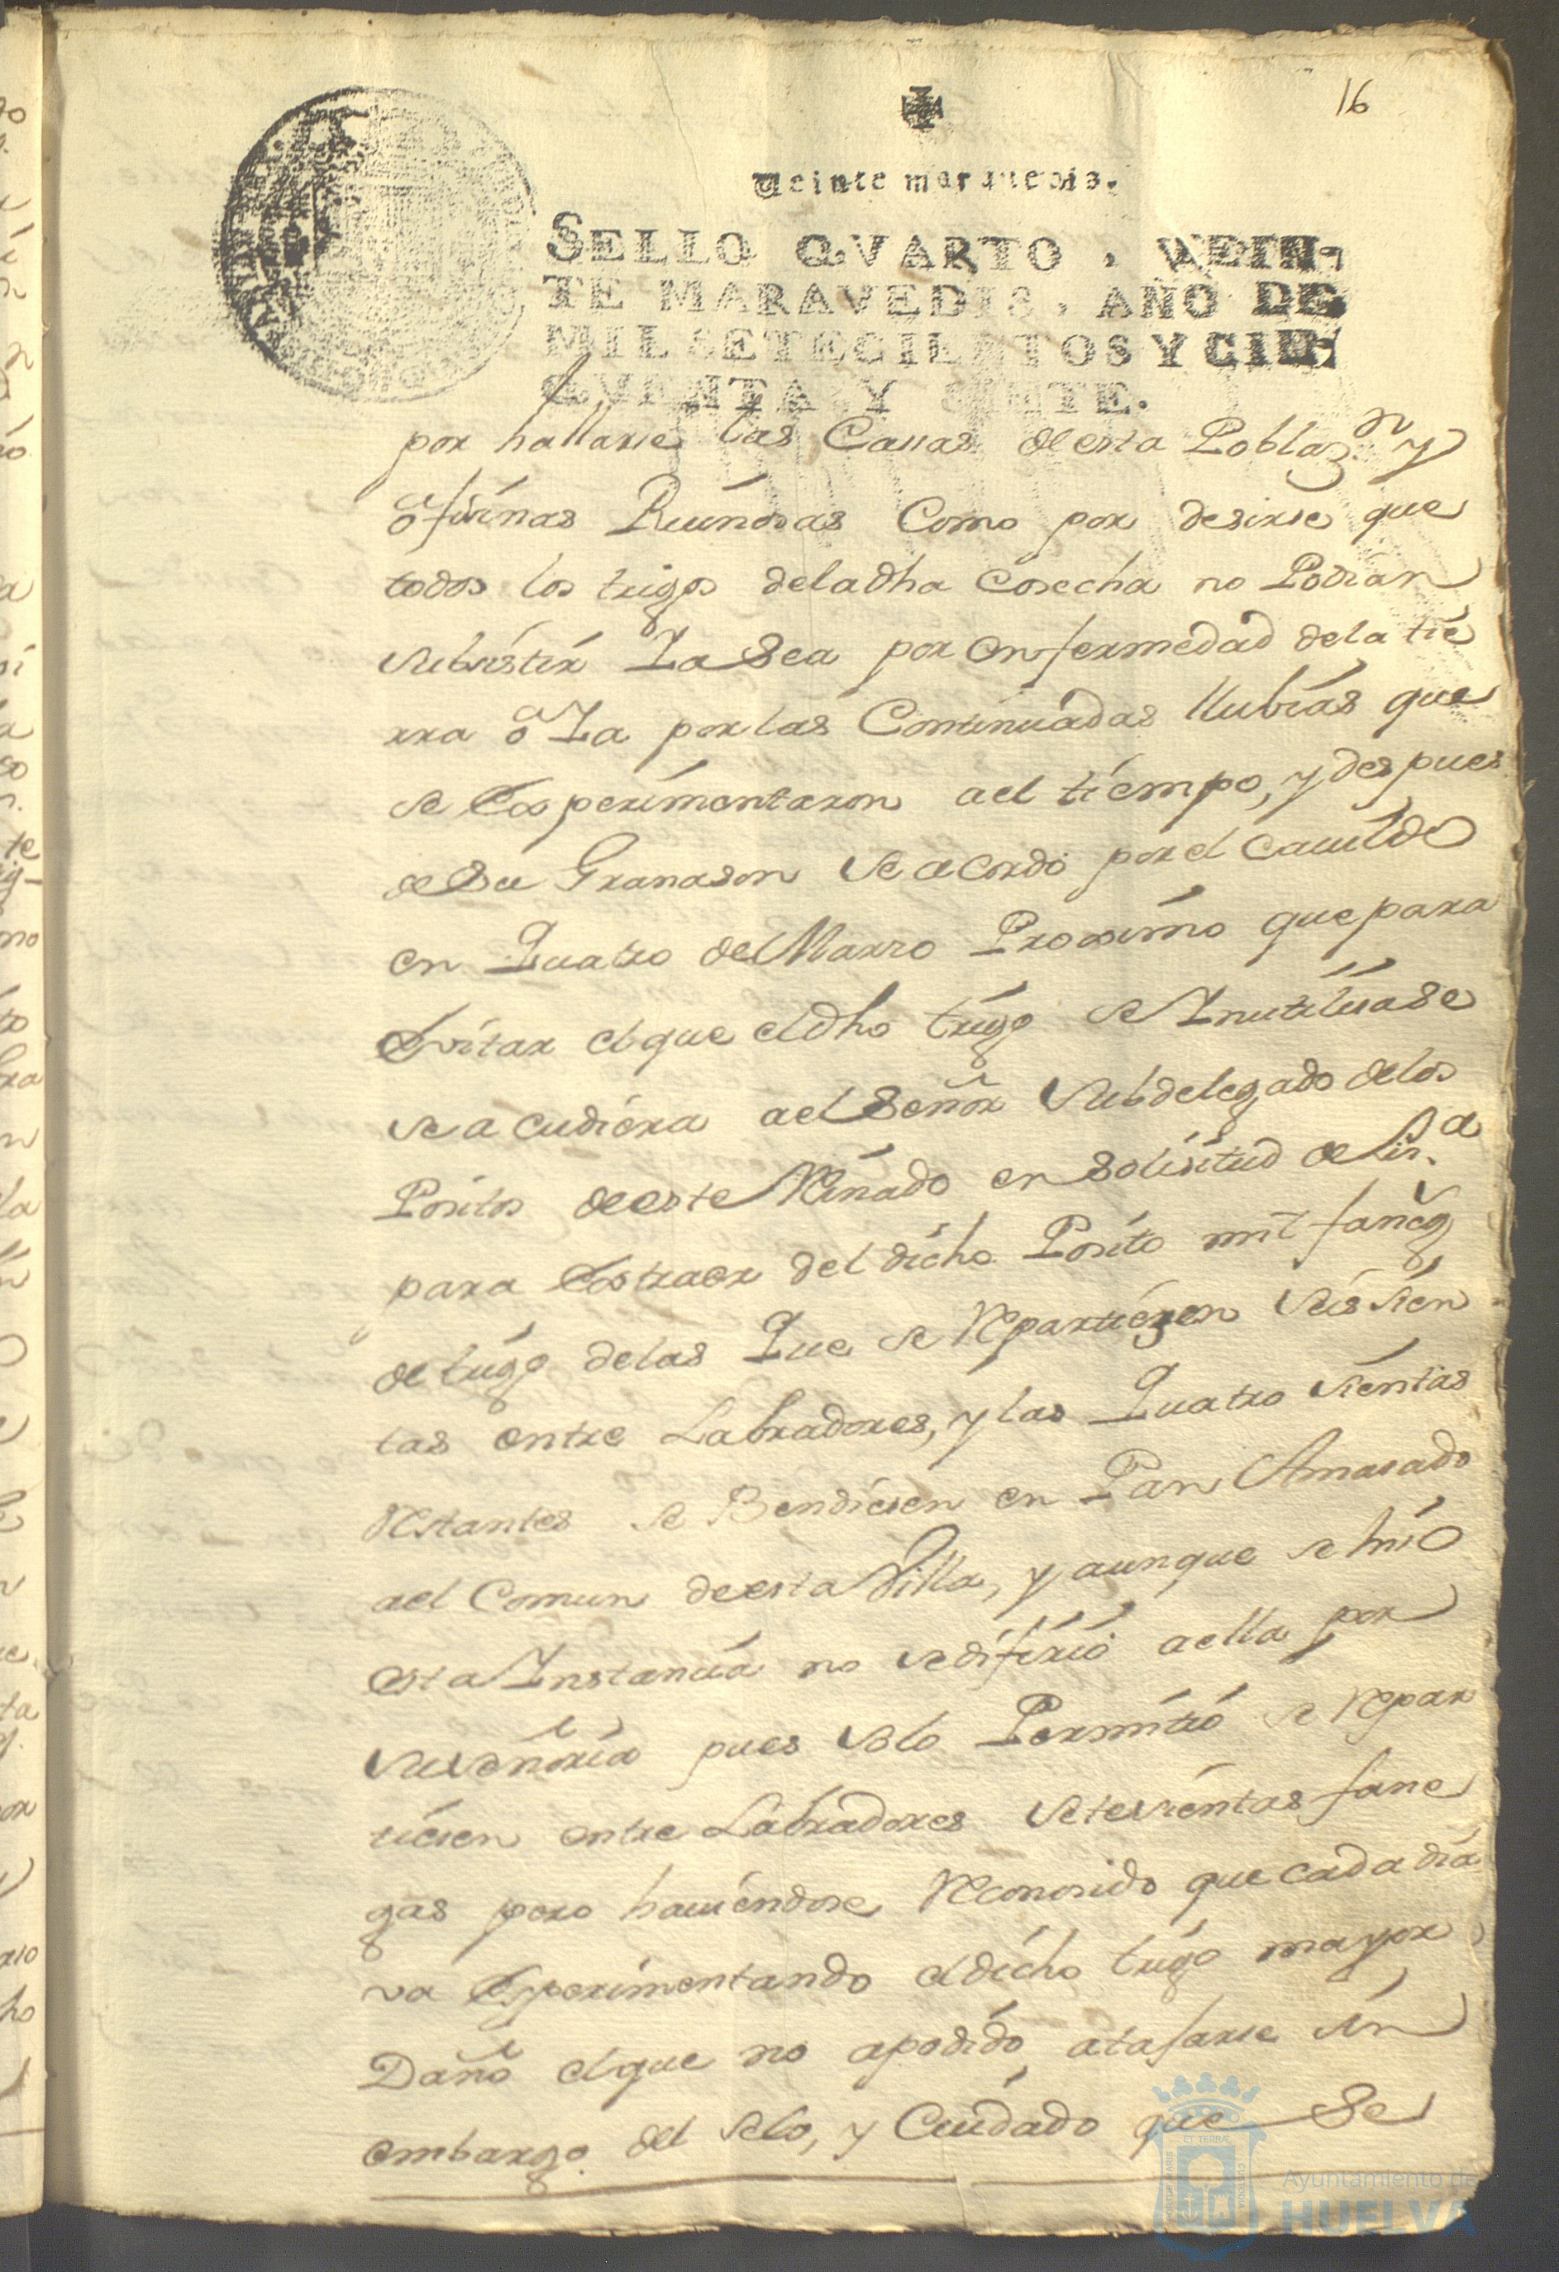 16
Veinte maravedis.
SELLO QVARTO, VEIN-
TE MARAVEDIS, AÑO DE
MIL SETECIENTOS Y CIN-
QVENTA Y SIETE.
por hallarse las Cassas de esta Poblaz.on y
ofisinas Ruinosas Como por desirse que
todos los trigos deladha Cosecha no Podian
subsistir Ya Sea por enfermedad dela tie
rra ô Ya por las Continuadas llubias que
se Experimentaron ael tiempo, y despues
de Su Granason se acordó por el Cavildo
en Quatro de Marzo Proximo que para
Evitar el que eldho trigo se Inutilisase
se acudiera ael Señor Subdelegado delos
Positos deeste Reinado en Solisitud de Lis.a
para Extraer del dicho Posito mil faneg
de trigo delas Que se Repartiesen Seissien
tas entre Labradores, y las Quatro sientas
Restantes se Bendiesen en Pan Amasado
ael Comun deesta Villa, y aunque se hiso
esta Instancia no sedifirió aella por
suseñoria pues solo Permitió se Repar
tiesen entre Labradores Setesientas fane
gas pero haviendose Reconosido que cada dia
va Esperimentando eldicho trigo mayor
Daño elque no apodido atajarse sin
embargo del Selo, y Cuidado que Se
Ayuntamiento de
HUELVA